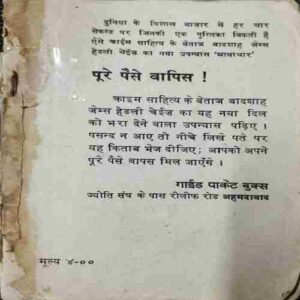 दुनिया के विशाल बाजार में हर चार
सेकण्ड पर जिनकी एक पुस्तिका बिकती है
ऐसे क्राईम साहित्य के बेताज बादशाह जेम्स
हेडली चेईज का नया उपन्यास 'अत्याचार'
पूरे पैसे वापिस !
क्राइम साहित्य के बेताज बादशाह
जेम्स हेडली चेईज का यह नया दिल
को भरा देने वाला उपन्यास पढ़िए ।
पसन्द न आए तो नीचे लिखे पते पर
यह किताब भेज दीजिए; आपको अपने
पूरे पैसे वापस मिल जाएँगे ।
गाईड पाकेट बुक्स
ज्योति संघ के पास रीलीफ रोड अहमदाबाद
मूल्य ४-००